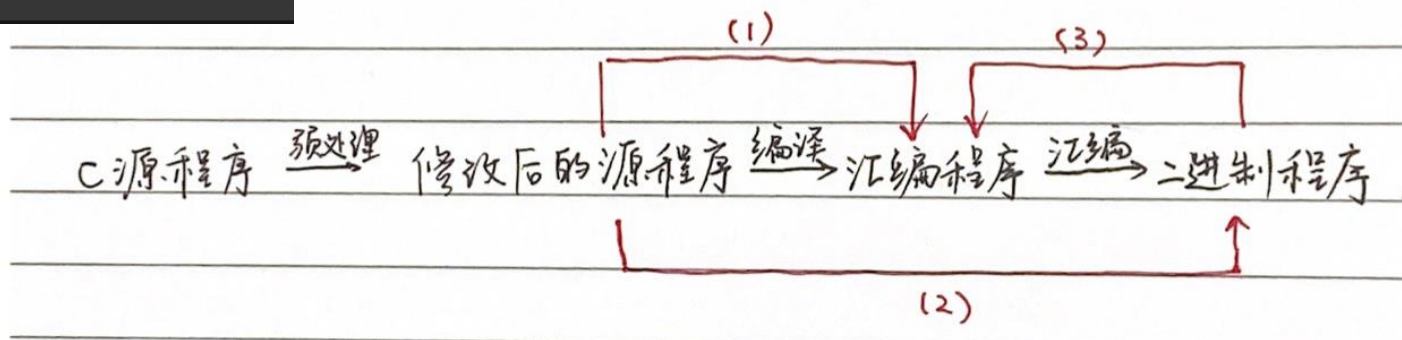 (1) (3)
C源程序 预处理 修改后的源程序 编译 汇编程序 汇编 二进制程序
(2)